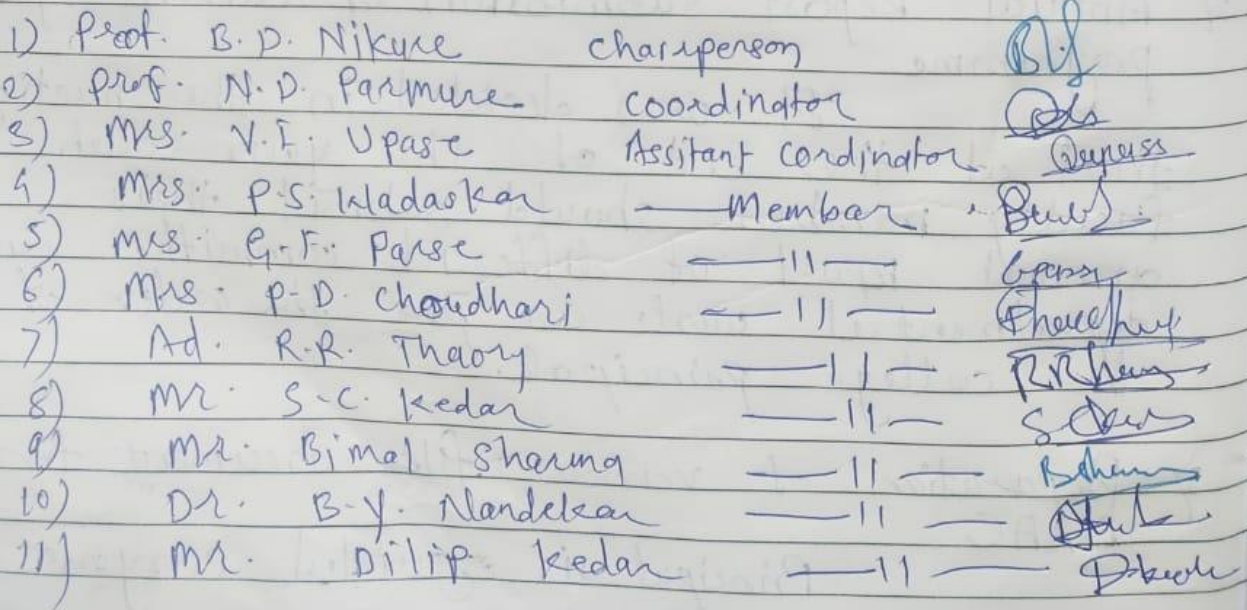 1) Prof. B. D. Nikure Chairperson
2) Prof. N. D. Parmure Coordinator
3) Mrs. V. I. Upase Assitant Cordinator
4) Mrs. P. S. Wadaskar — Membar
5) Mrs. G. F. Parse — 11 —
6) Mrs. P. D. Choudhari — 11 —
7) Ad. R. R. Thaory — 11 —
8) Mr. S. C. Kedar — 11 —
9) Mr. Bimal Sharma — 11 —
10) Dr. B. Y. Nandekar — 11 —
11) Mr. Dilip Kedar — 11 —